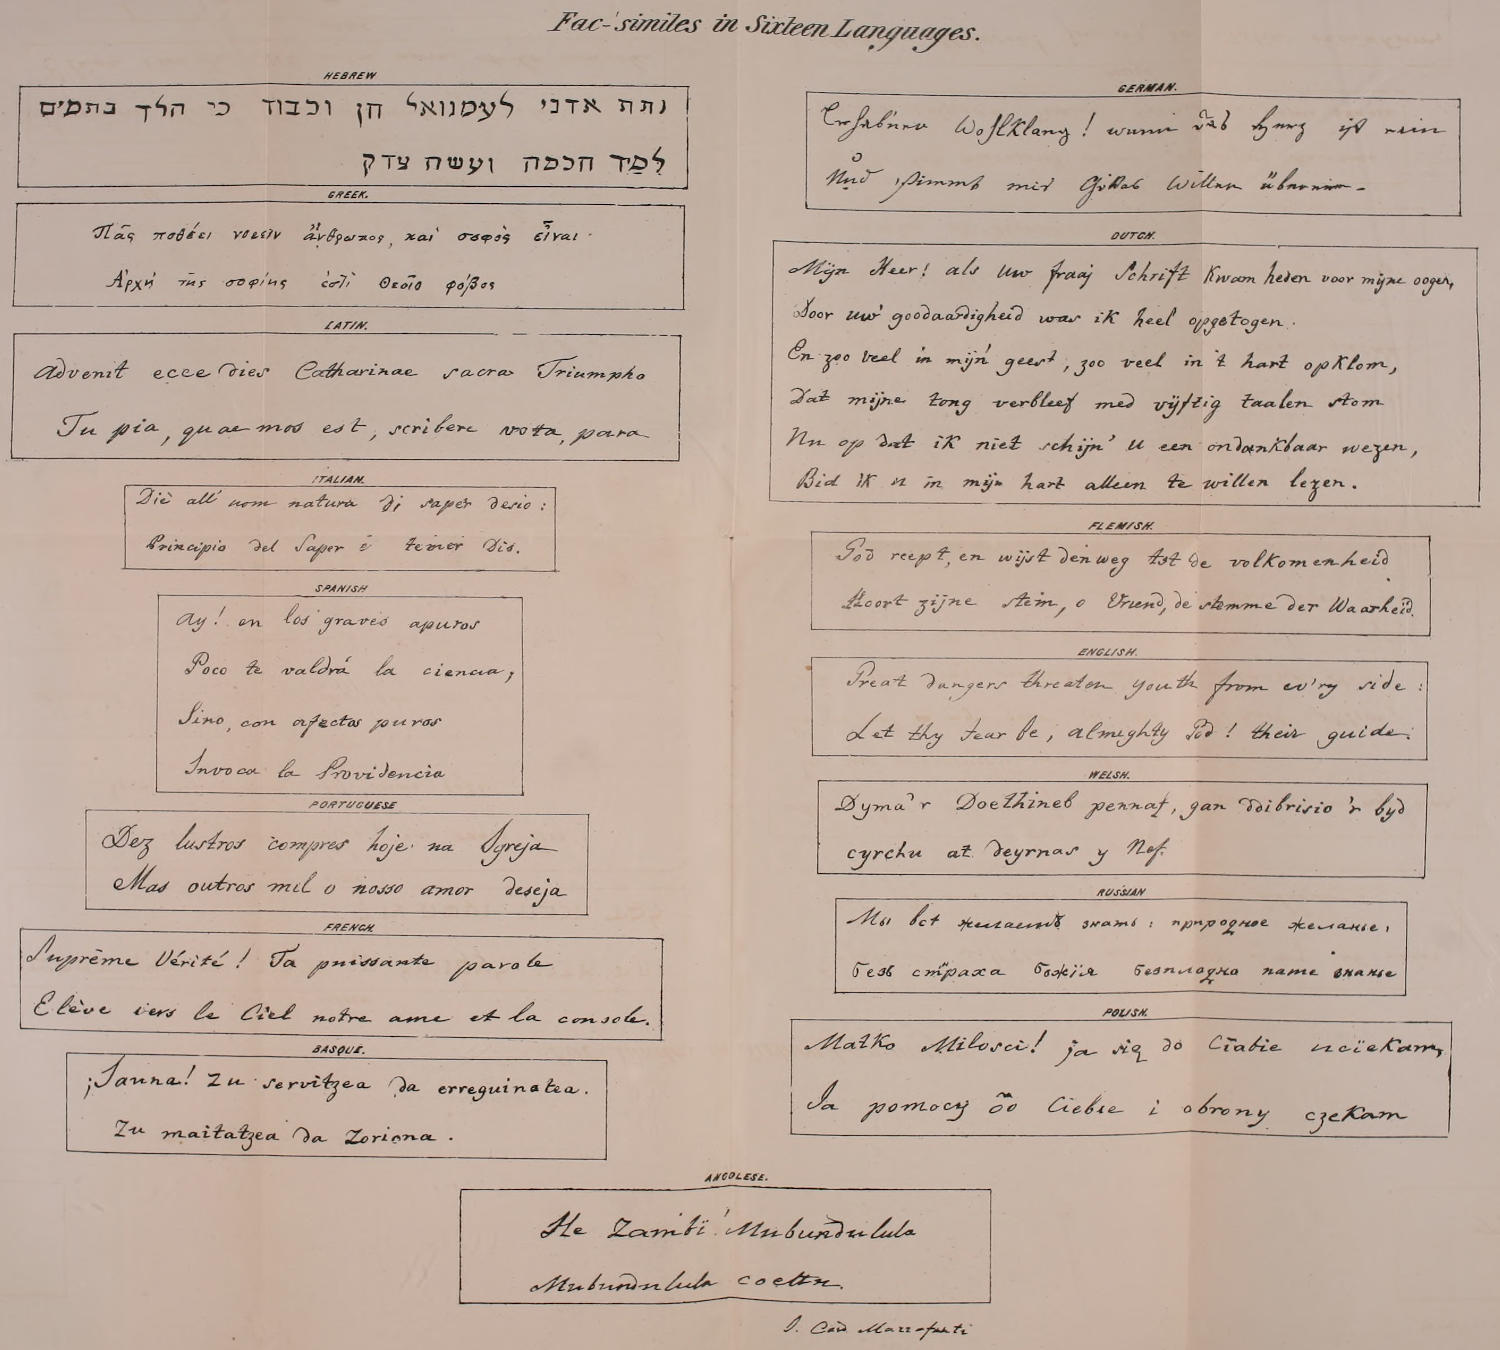 Fac-similes in Sixteen Languages.
HEBREW
נתת אדני לעמנואל חן וכבוד כי הלך בתמים
למיד חכמה ועשה צדק
GREEK.
Πᾶς ποθέει νοεῖν ἄνθρωπος, καὶ σοφὸς εἶναι
Ἀρχὴ τῆς σοφίης ἐστὶ Θεοῖο φόβος
LATIN.
Advenit ecce dies Catharinae sacra Triumpho
Tu pia, quae mos est, scribere vota, para
ITALIAN.
Diè all' uom natura di saper desio:
Principio del Saper è temer Dio.
SPANISH
Ay! en los graves apuros
Poco te valdrá la ciencia,
Sino, con afectos puros
Invoca la Providencia
PORTUGUESE
Dez lustros compres hoje na Igreja
Mas outros mil o nosso amor deseja
FRENCH.
Suprême Vérité! Ta puissante parole
Elève vers le Ciel notre ame et la console.
BASQUE.
¡Jauna! Zu servitzea da erreguinatea.
Zu maitatzea da Zoriona.
GERMAN.
Erhab'ner Wohlklang! wenn das Herz ist rein
Und stimmt mit Gottes Willen überein
DUTCH.
Mijn Heer! als uw fraaj Schrift Kwam heden voor mijne oogen,
Door uw' goodaardigheid was ik heel opgetogen.
En zoo veel in mijn' geest, zoo veel in 't hart opklom,
Dat mijne tong verbleef med vijftig taalen stom
Nu op dat ik niet schijn' u een ondankbaar wezen,
Bid ik u in mijn hart alleen te willen lezen.
FLEMISH.
God roept, en wijst den weg tot de volkomenheid
Hoort zijne stem, o Vriend, de stemme der Waarheid.
ENGLISH.
Great dangers threaten youth from ev'ry side:
Let thy fear be, almighty God! their guide.
WELSH.
Dyma'r Doethineb pennaf, gan ddibrisio 'r byd
cyrchu at deyrnas y Nef.
RUSSIAN
Мы всѣ желаемъ знать: природное желанье,
безъ страха божія безплодно наше знанье
POLISH.
Matko Milosci! ja się do Ciebie uciekam,
Ja pomocy oo Ciebie i obrony czekam
ANGOLESE.
He Zambi! Mubundulula
Mubundulula coettu.
J. Card Mezzofanti